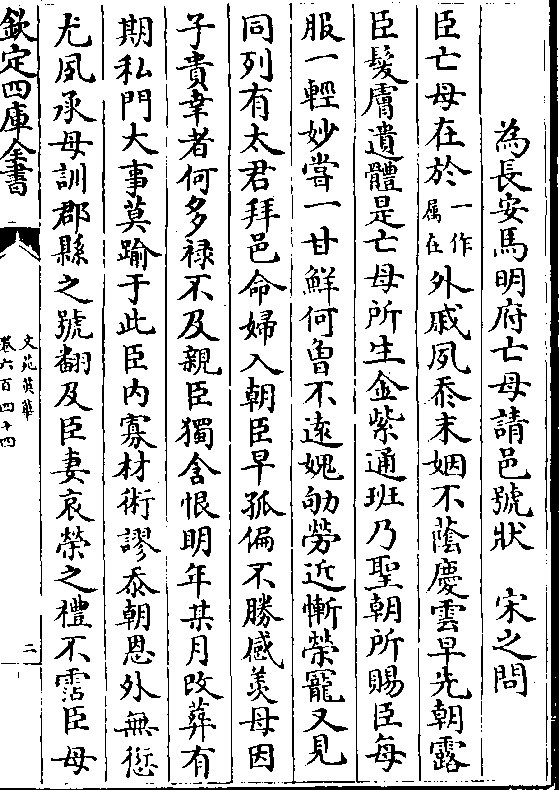 為長安馬明府亡母請邑號狀　宋之問
臣亡母在於一作属在外戚夙忝末姻不蔭慶雲早先朝露
臣髮膚遺體是亡母所生金紫通班乃聖朝所賜臣每
服一輕妙嘗一甘鮮何曾不遠媿劬勞近慚榮寵又見
同列有太君拜邑命婦入朝臣早孤偏不勝感羡母因
子貴幸者何多祿不及親臣獨含恨明年某月改葬有
期私門大事莫踰于此臣内寡材術謬忝朝恩外無愆
尤夙承母訓郡縣之號翻及臣妻哀榮之禮不霑臣母
欽定四庫全書
文苑英華
卷六百四十四
二